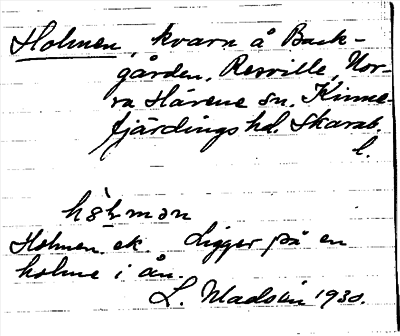 Holmen, kvarn å Back-
gården, Resville, Nor-
ra Härene sn. Kinne-
fjärdings hd. Skarab.
l.
Holmen ek. ligger på en
holme i ån.
L. Madsén 1930.